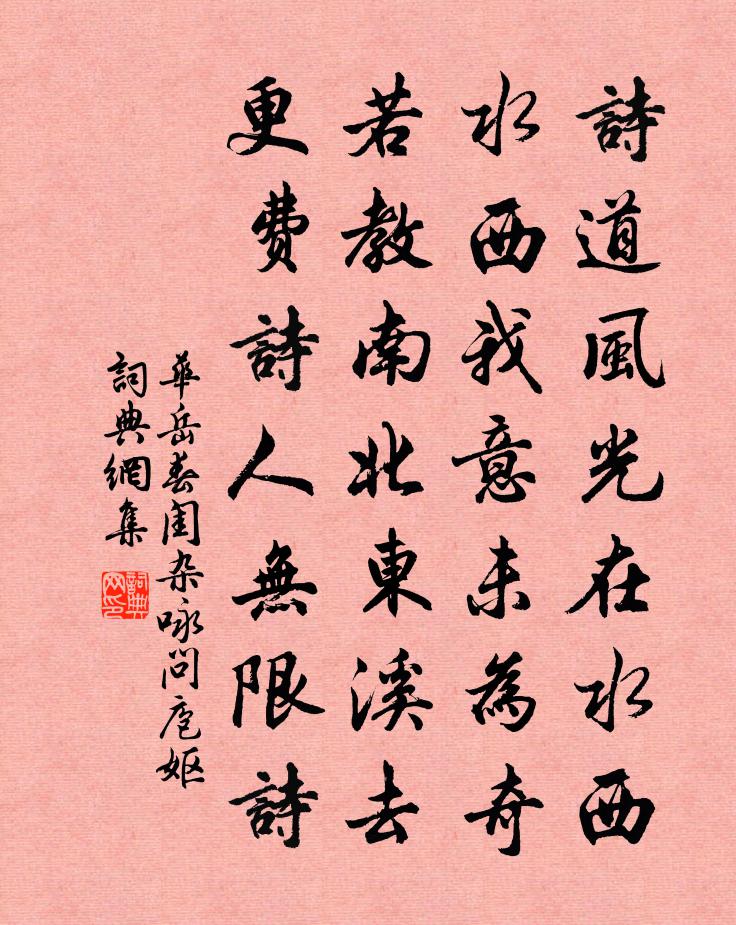 詩道風光在水西
水西我意未為奇
若教南北東溪去
更費詩人無限詩
華岳春閨杂咏問庖妪
詞典網集
詞典网印